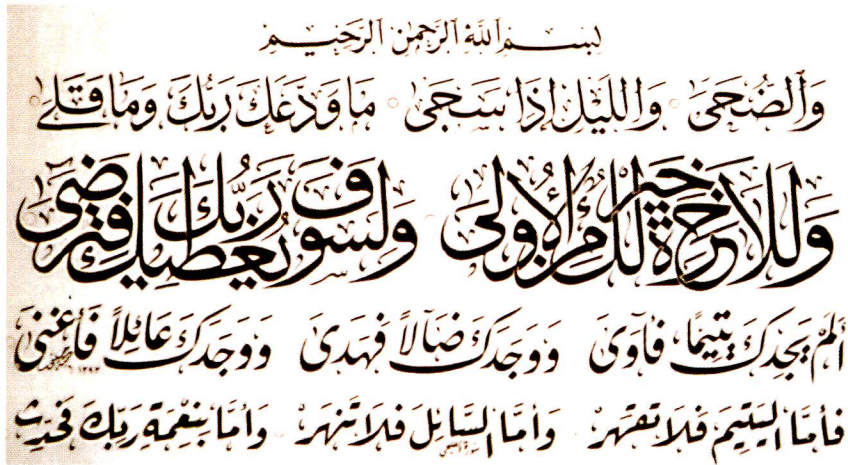 بِسْمِ اللَّهِ الرَّحْمٰنِ الرَّحِيمِ
وَالضُّحَى وَاللَّيْلِ إِذَا سَجَى مَا وَدَّعَكَ رَبُّكَ وَمَا قَلَى
وَلَلْآخِرَةُ خَيْرٌ لَكَ مِنَ الْأُولَى وَلَسَوْفَ يُعْطِيكَ رَبُّكَ فَتَرْضَى
أَلَمْ يَجِدْكَ يَتِيمًا فَآوَى وَوَجَدَكَ ضَالًّا فَهَدَى وَوَجَدَكَ عَائِلًا فَأَغْنَى
فَأَمَّا الْيَتِيمَ فَلَا تَقْهَرْ وَأَمَّا السَّائِلَ فَلَا تَنْهَرْ وَأَمَّا بِنِعْمَةِ رَبِّكَ فَحَدِّثْ